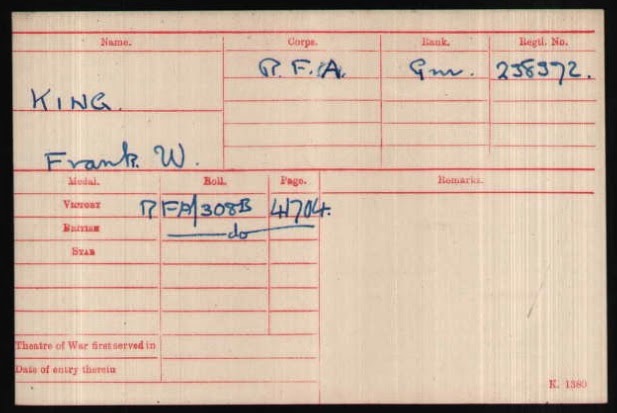 Name. Corps. Rank. Regtl. No.
R. F. A. Gnr. 238372.
KING.
Frank. W.
Medal. Roll. Page. Remarks.
VICTORY RFA/308B 41704.
BRITISH do
STAR
Theatre of War first served in
Date of entry therein
K. 1380